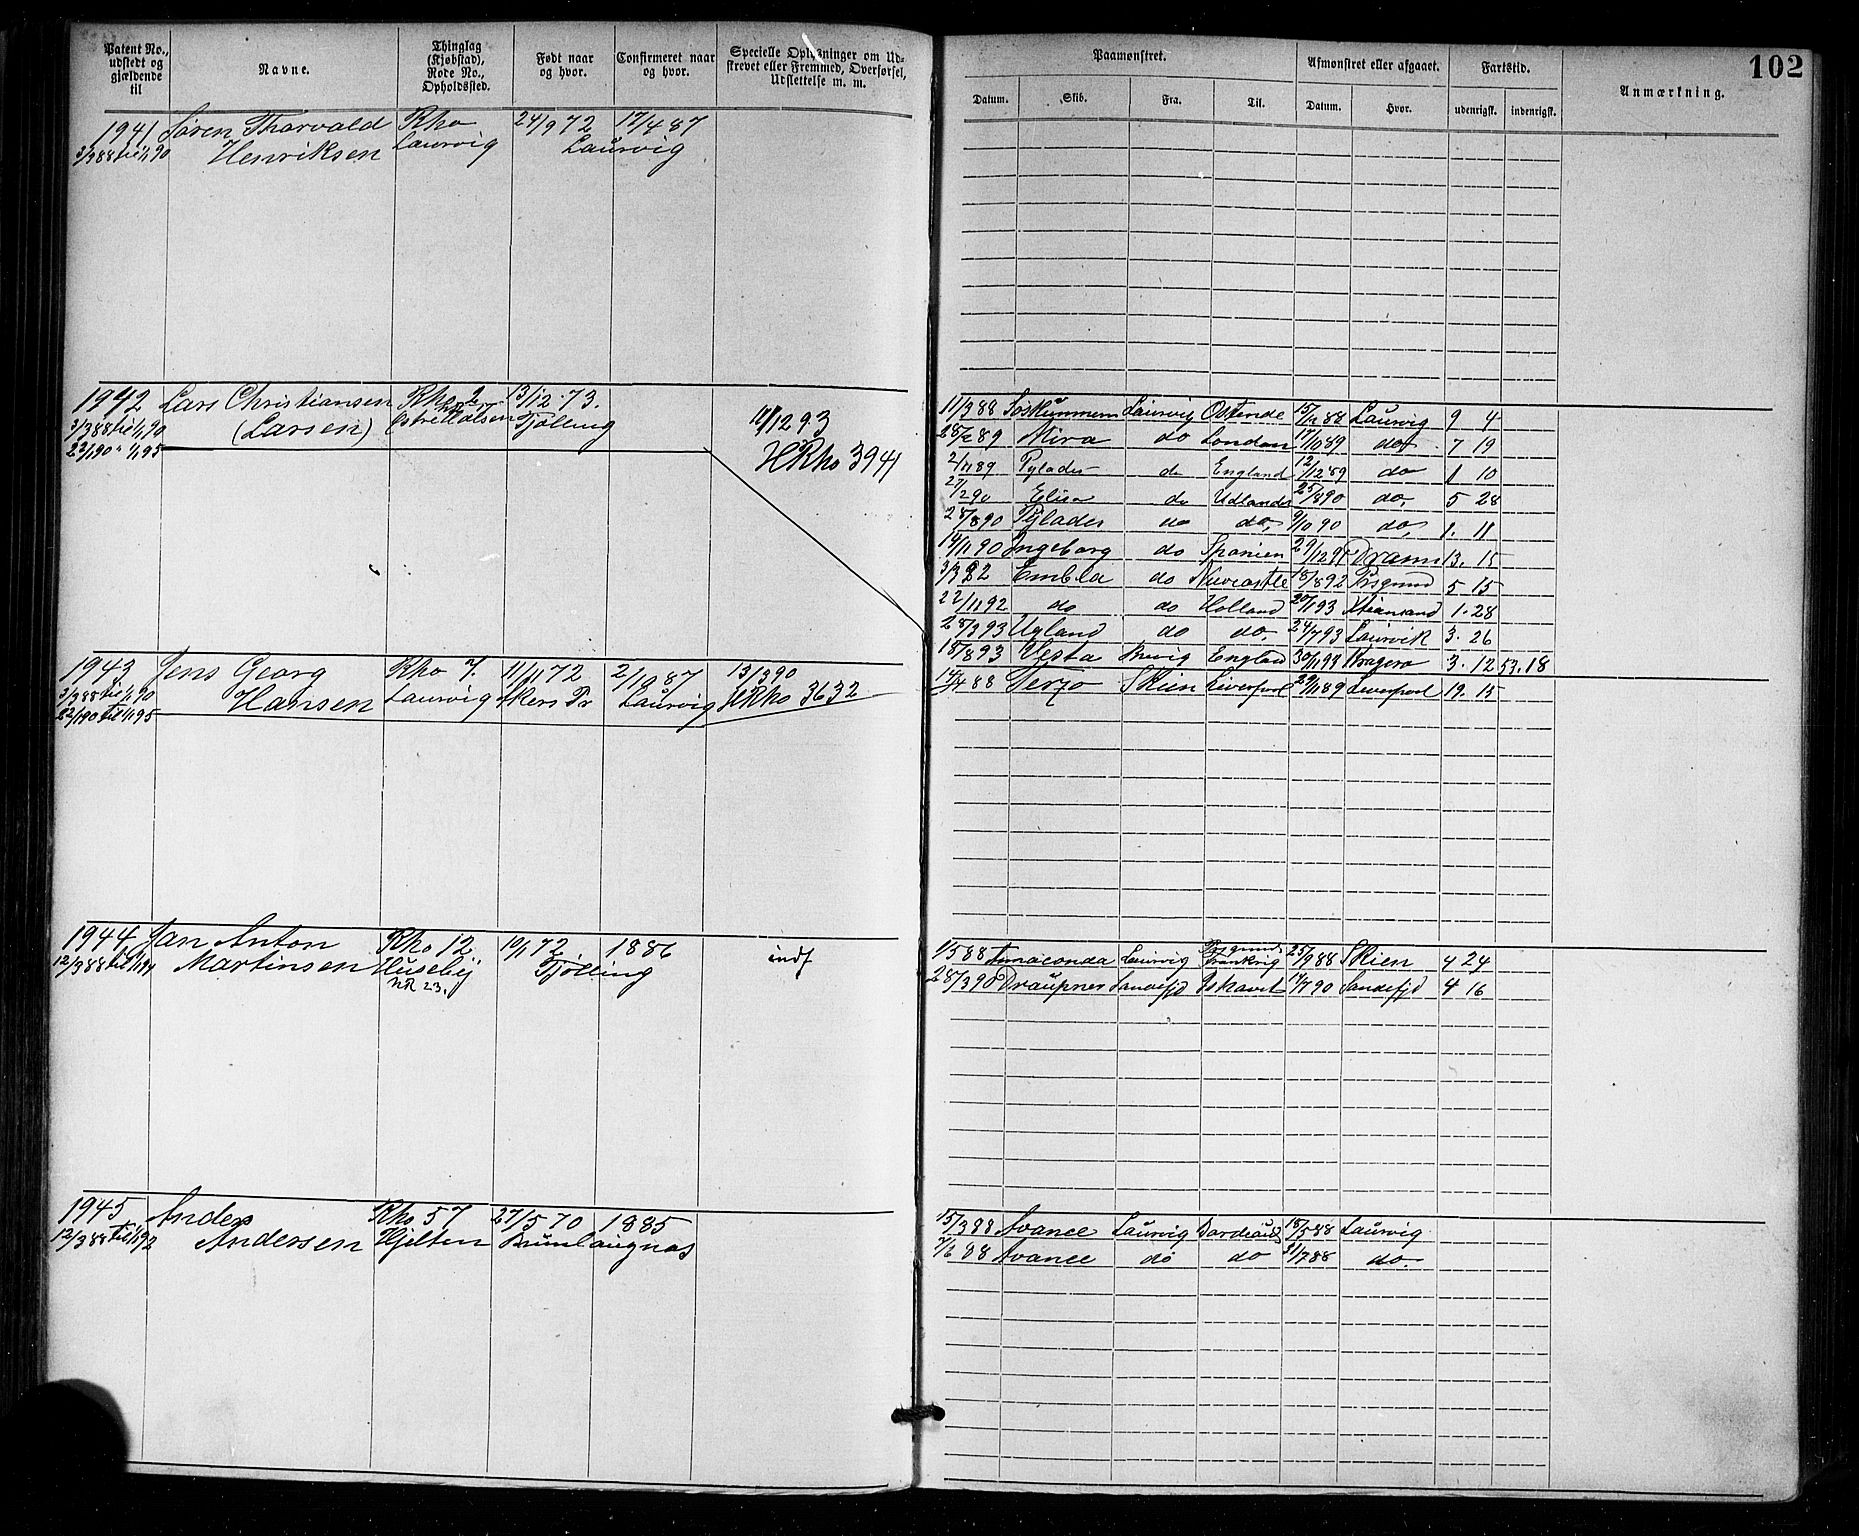 102
Patent No., udstedt og gjældende til
Navne.
Thinglag (Kjøbstad), Rode No., Opholdssted.
Født naar og hvor.
Confirmeret naar og hvor.
Specielle Oplysninger om Udskrevet eller Fremmed, Overførsel, Udslettelse m. m.
Paamønstret.
Afmønstret eller afgaaet.
Fartstid.
Anmærkning.
Datum. Skib. Fra. Til. Datum. Hvor. udenrigsk. indenrigsk.
1941 Søren Tharvald Rho 24/9 72 17/4 87
3/3 88 til 1/1 90 Henriksen Laurvig Laurvig
1942 Lars Christiansen Rho 2 13/12 73.
3/3 88 til 1/1 90 (Larsen) Østre Tjølling
22/1 90 " 1/1 95
12 93
HRho 3941
11/3 88 Laurvig Ostende 15/12 88 Laurvig 9 4
28/2 89 Mira do London 17/10 89 do 7 19
2/11 89 Pylades do England 12/12 89 do 1 10
27/2 90 Elisa do Udlandet 25/8 90 do. 5 28
28/8 90 Pylades do do, 9/10 90 do, 1. 11
14/11 90 Ingeborg do Spanien 29/12 91 Dramm 13. 15
3/3 92 Embla do Newcastle 18/8 92 Prsgrund 5 15
22/11 92 do do Holland 20/1 93 Xtiansand 1. 28
28/3 93 Ugland do do. 24/7 93 Laurvik 3. 26
18/8 93 Vesta Brevig England 30/11 93 Kragerø 3. 12 53. 18
1943 Jens Georg Rho 7. 11/11 72 2/10 87 13/3 90
3/3 88 til 1/1 90 Hansen Laurvig Skers Pr Laurvig HRho 3632
22/1 90 til 1/1 95
88 Terjo Skien Liverpool 29/11 89 Liverpool 19. 15
1944 Jan Anton Rho 12. 10/1 72 1886 indf
12/3 88 til 1/1 94 Martinsen Huseby Tjølling
NR 23.
1/5 88 Annaconda Laurvig Prsgrund Frankrig 25/9 88 Skien 4 24
28/3 90 Draupner Sandefjd Ishavet 14/7 90 Sandefjd 4 16
1945 Anders Rho 57 27/5 70 1885
12/3 88 til 1/1 92 Andersen Hjelten Brunlaugnæs
15/3 88 Avance Laurvig Bordeaux 18/5 88 Laurvig
7/6 88 Avance do do 31/7 88 do.